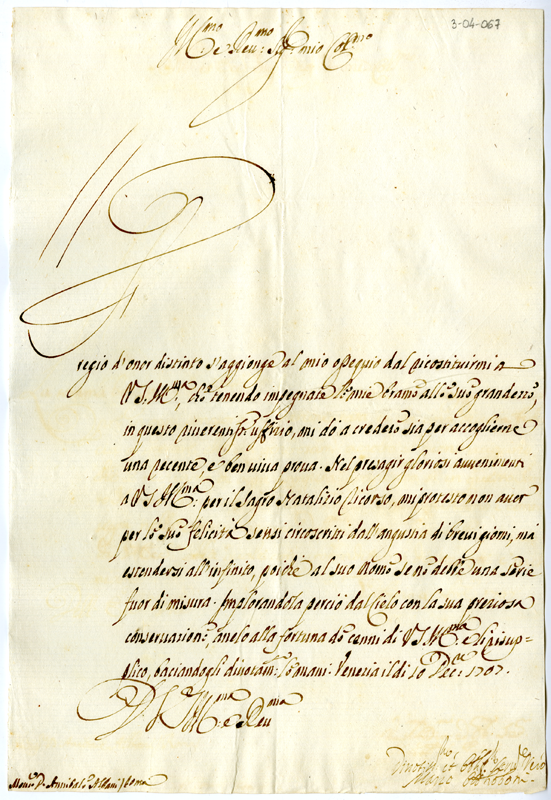 3-04-067
Ill.mo e Reu: Sig.r mio Col.mo
Pregio d'onor distinto s'aggionge al mio ossequio dal ricostituirmi a
V.S. Ill.ma, che tenendo impegnate le mie brame alle sue grandezze,
in questo riuerentiss.o uffizio, mi dò a credere sia per accoglierne
una recente, e ben uiua proua. Nel presagir gloriosi auuenimenti
a V.S. Ill.ma: per il Sagro Natalitio Ricorso, mi protesto non auer
per le sue felicità sensi circoscritti dall'angustia di breui giorni, mà
estendersi all'infinito, poiche al suo Nome se ne deue una serie
fuor di misura. Implorandola perciò dal Cielo con la sua preziosa
conseruazione, anelo alla fortuna de cenni di V.S. Ill.ma e li risup=
plico, baciandogli diuotam: le mani. Venezia il dì 10 Dec.e 1707.
D V S Ill.ma e Reu.ma
Mons.r D. Annibale Albani / Roma
Diuotiss.o et Obl.